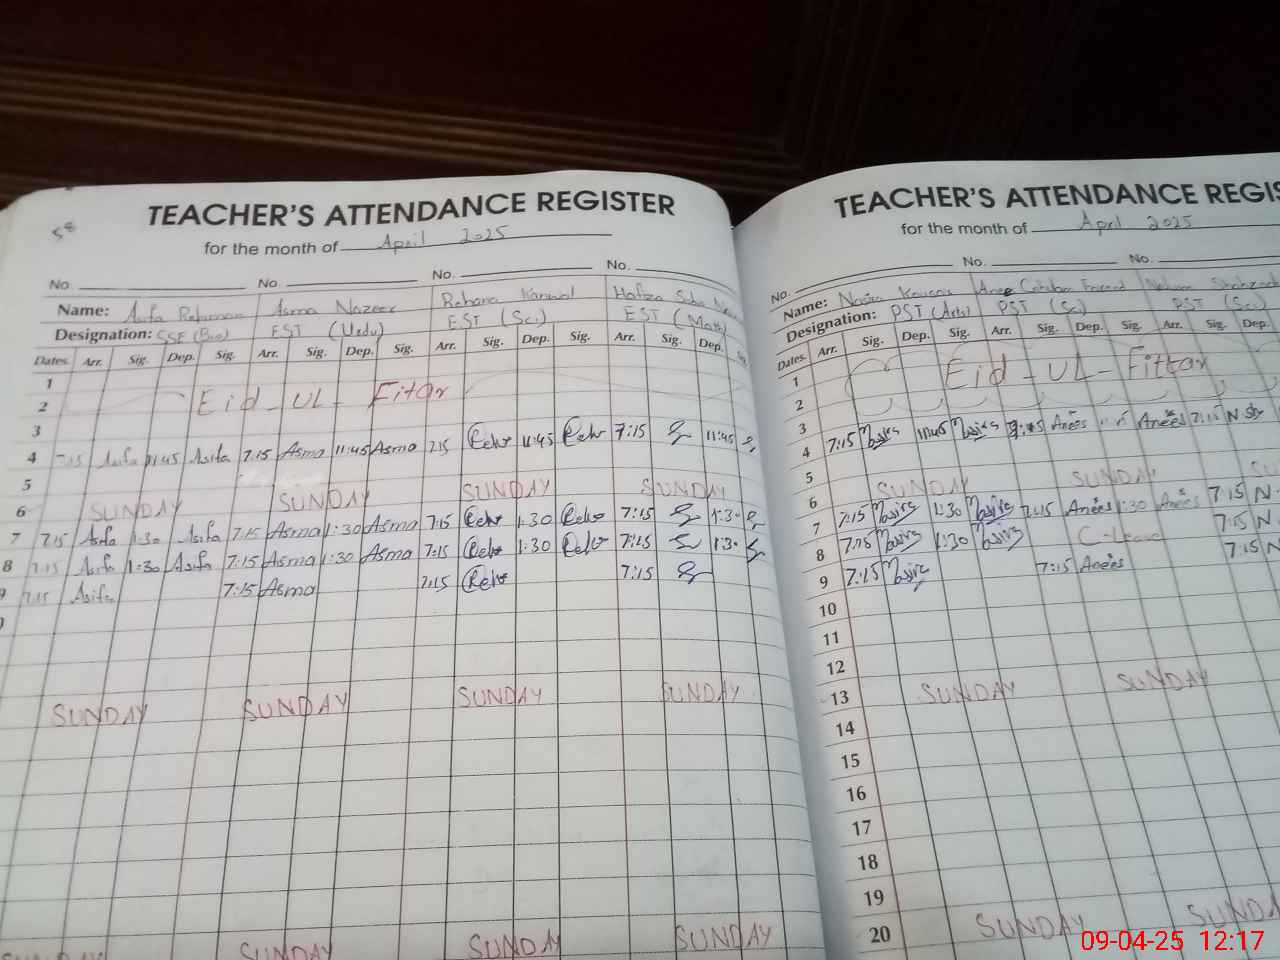 58
TEACHER'S ATTENDANCE REGISTER
for the month of April 2025
No. No. No. No.
Name: Asifa Rehman Asma Nazeer Rehana Kanwal Hafiza Saba
Designation: SSE (Bio) EST (Urdu) EST (Sci) EST (Math)
Dates Arr. Sig. Dep. Sig. Arr. Sig. Dep. Sig. Arr. Sig. Dep. Sig. Arr. Sig. Dep. Sig.
1
2 Eid - UL - Fitar
3
4 7:15 Asifa 11:45 Asifa 7:15 Asma 11:45 Asma 7:15 11:45 7:15 11:45
5
6 SUNDAY SUNDAY SUNDAY SUNDAY
7 7:15 Asifa 1:30 Asifa 7:15 Asma 1:30 Asma 7:15 1:30 7:15 1:3
8 7:15 Asifa 1:30 Asifa 7:15 Asma 1:30 Asma 7:15 1:30 7:15 1:3
9 7:15 Asifa 7:15 Asma 7:15 7:15
SUNDAY SUNDAY SUNDAY SUNDAY
SUNDAY SUNDAY SUNDAY SUNDAY
TEACHER'S ATTENDANCE REGIS
for the month of April 2025
No. No. No.
Name: Kousar Shahzad
Designation: PST (Arts) PST (Sci) PST (Sci)
Dates Arr. Sig. Dep. Sig. Arr. Sig. Dep. Sig. Arr. Sig. Dep.
1 Eid - UL - Fittar
2
3
4 7:15 11:45 Anees Anees 7:15 N
5
6 SUNDAY SUNDAY SU
7 7:15 1:30 7:15 Anees 1:30 Anees 7:15 N
8 7:15 1:30 C-Leave 7:15 N
9 7:15 7:15 Anees 7:15 N
10
11
12
13 SUNDAY SUNDAY
14
15
16
17
18
19
20 SUNDAY SUNDA
09-04-25 12:17